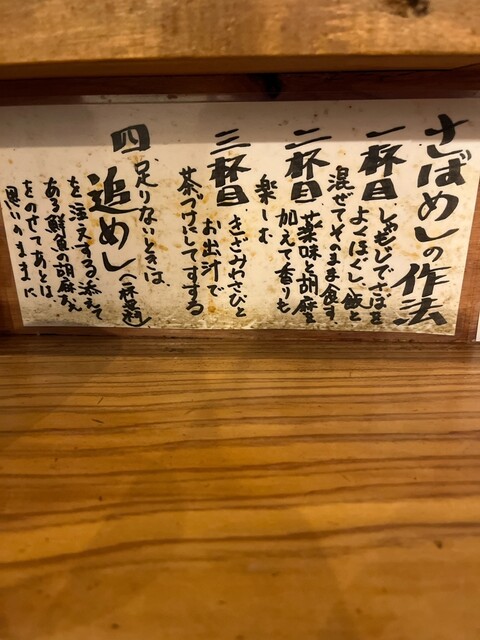 さばめしの作法
一杯目
しゃもじでさばを
よくほぐし、飯と
混ぜてそのまま食す
二杯目
薬味と胡麻を
加えて香りも
楽しむ
三杯目
きざみわさびと
お出汁で
茶づけにしてすする
四
足りないときは
追めし
を注文する添えて
ある鮮魚の胡麻和え
をのせてあとは
思いのままに